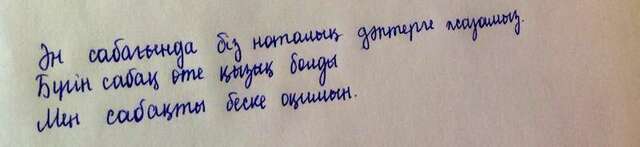 Ән сабағында бізноталық дәптерге жазамыз.
Бүгін сабақ өте қызық болды
Мен сабақты беске оқимын.